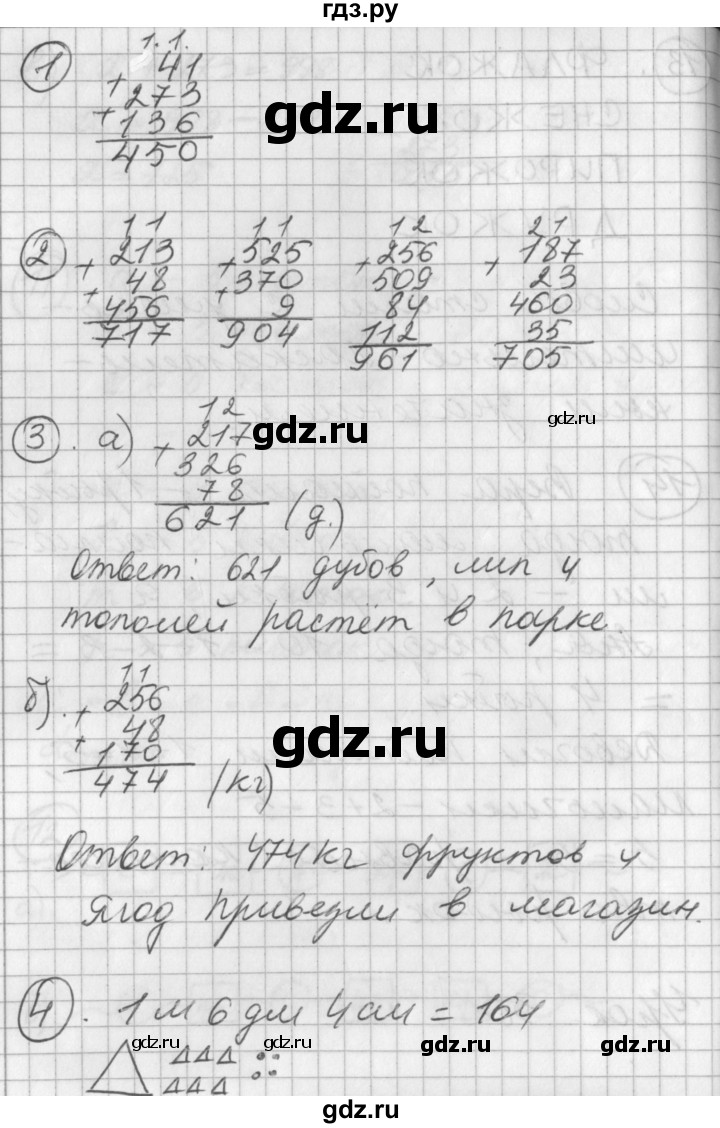 гдз.ру
1
1.1.
+41
+273
136
450
gdz.ru
2
11
+213
+48
456
717
11
+525
+370
9
904
12
+256
509
84
112
961
21
+187
23
460
35
705
3. а)
12
+217
326
78
621 (д.)
gdz.ru
gdz.ru
Ответ: 621 дубов, лип и
тополей растёт в парке.
б).
11
+256
+48
170
474 (кг)
gdz.ru
Ответ: 474 кг фруктов и
ягод привезли в магазин.
4. 1 м 6 дм 4 см = 164
gdz.ru gdz.ru gdz.ru gdz.ru
gdz.ru